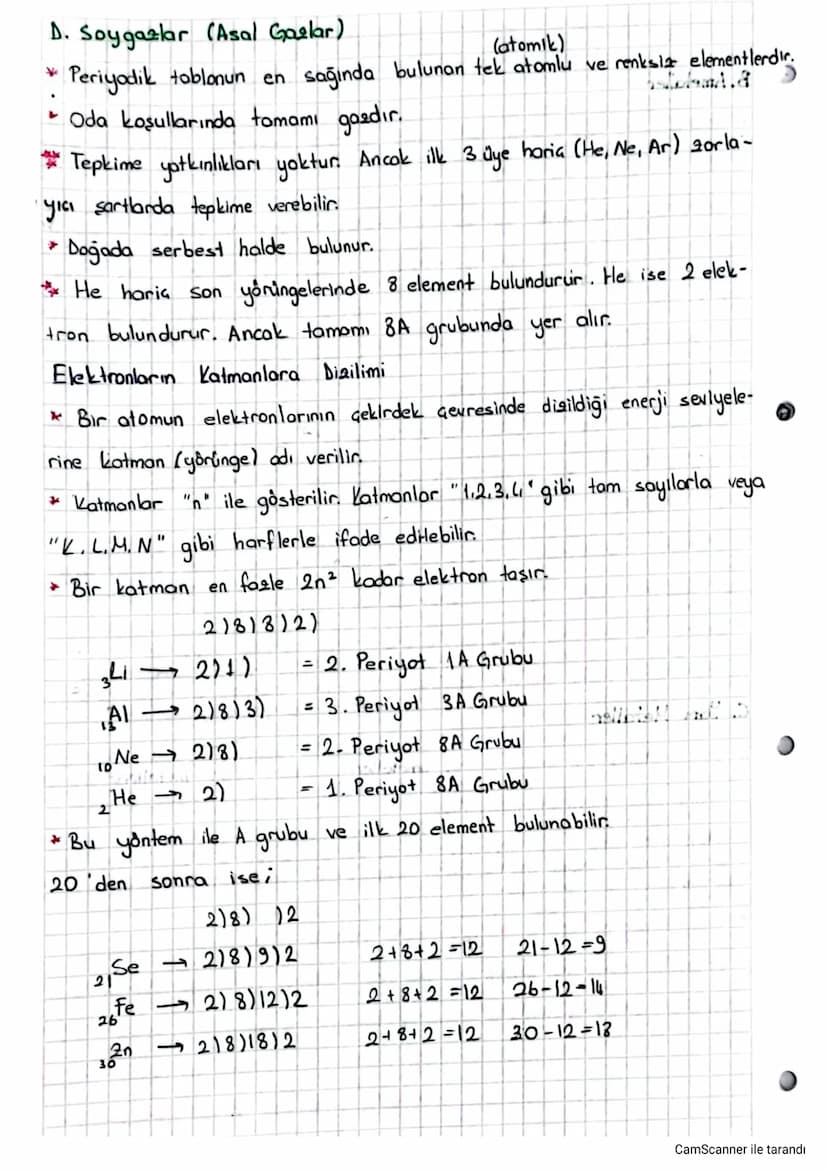 D. Soygazlar (Asal Gazlar)
(atomik)
* Periyodik tablonun en sağında bulunan tek atomlu ve renksiz elementlerdir.
* Oda koşullarında tamamı gazdır.
* Tepkime yatkınlıkları yoktur. Ancak ilk 3 üye hariç (He, Ne, Ar) zorla-
yıcı şartlarda tepkime verebilir.
* Doğada serbest halde bulunur.
* He hariç son yörüngelerinde 8 element bulundurur. He ise 2 elek-
tron bulundurur. Ancak tamamı 8A grubunda yer alır.
Elektronların Katmanlara Dizilimi
* Bir atomun elektronlarının çekirdek çevresinde dizildiği enerji seviyele-
rine katman (yörünge) adı verilir.
* Katmanlar "n" ile gösterilir. Katmanlar "1,2,3,4" gibi tam sayılarla veya
"K, L, M, N" gibi harflerle ifade edilebilir.
* Bir katman en fazla 2n² kadar elektron taşır.
2)8)8)2)
₃Li → 2)1) = 2. Periyot 1A Grubu
₁₃Al → 2)8)3) = 3. Periyot 3A Grubu
₁₀Ne → 2)8) = 2. Periyot 8A Grubu
₂He → 2) = 1. Periyot 8A Grubu
* Bu yöntem ile A grubu ve ilk 20 element bulunabilir.
20'den sonra ise;
2)8) )2
₂₁Se → 2)8)9)2 2+8+2=12 21-12=9
₂₆Fe → 2)8)12)2 2+8+2=12 26-12=14
₃₀Zn → 2)8)18)2 2+8+2=12 30-12=18
CamScanner ile tarandı